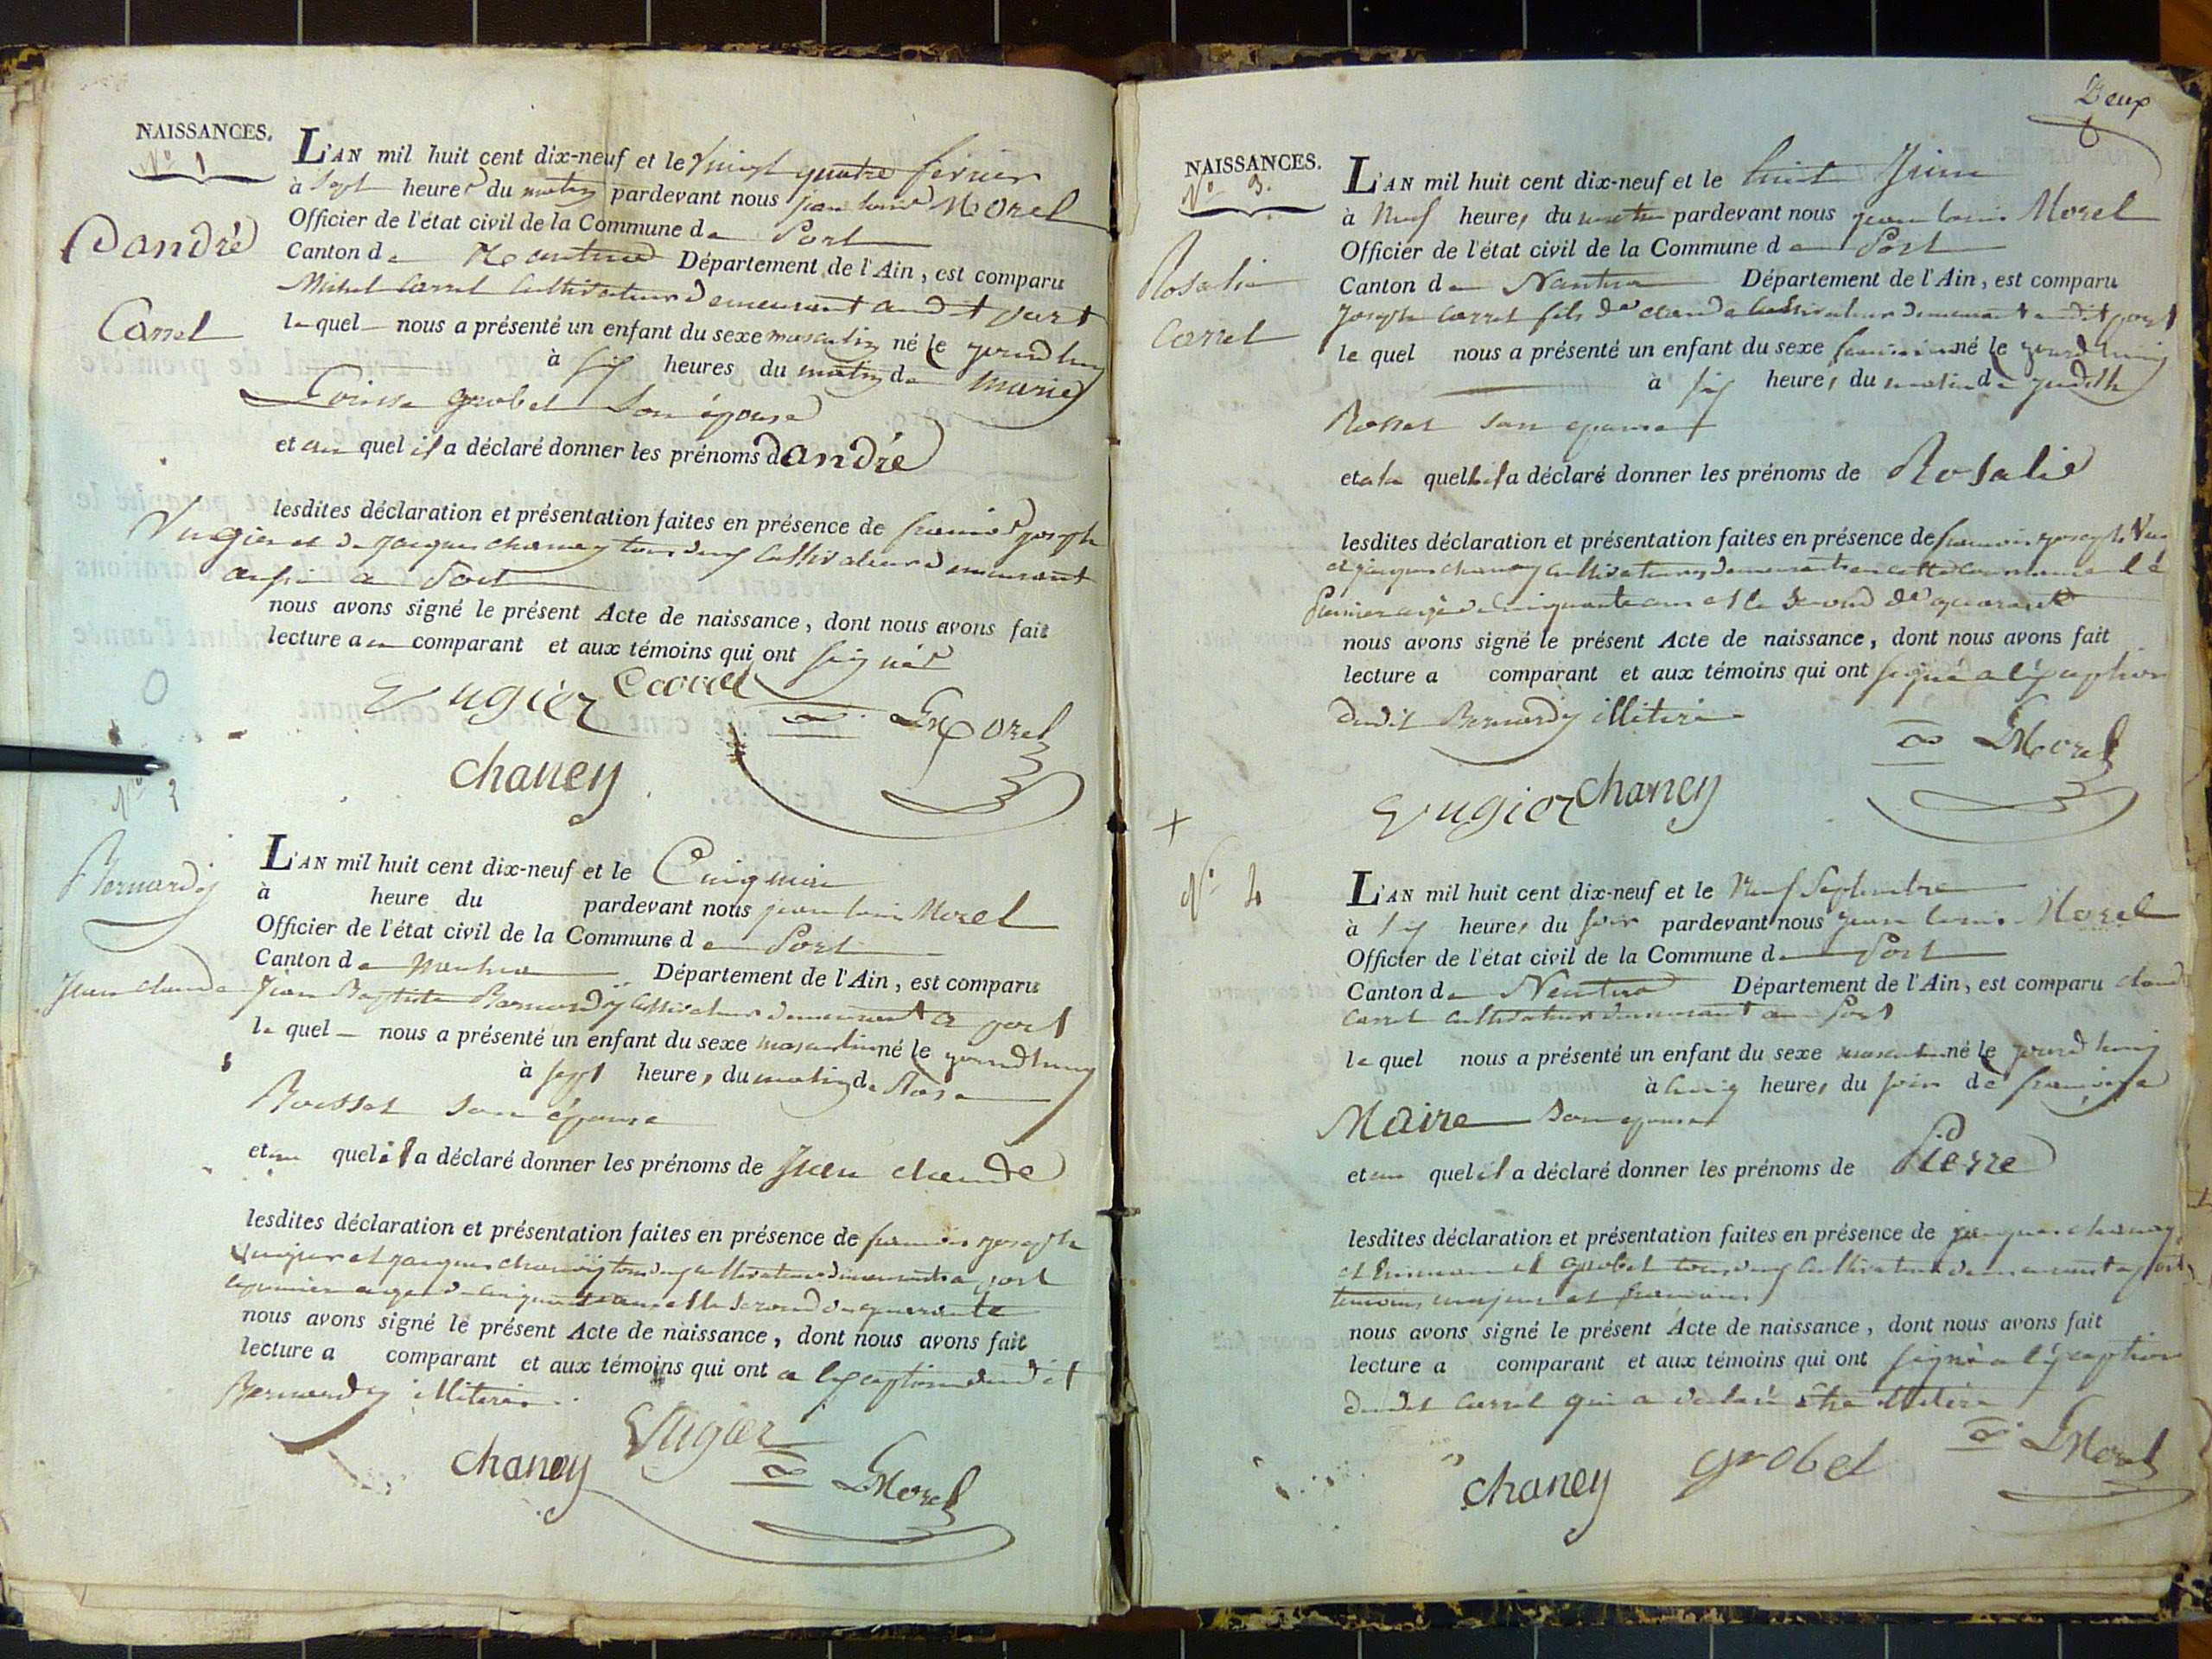 NAISSANCES.
No 1
L'AN mil huit cent dix-neuf et le vingt quatre fevrier
à Sept heures du matin pardevant nous jean louis Morel
Officier de l'état civil de la Commune de Port
Canton de Nantua Département de l'Ain, est comparu
Michel Carrel Cultivateur demeurant audit port
le quel nous a présenté un enfant du sexe masculin né le jourdhuy
à six heures du matin de marie
Grobet Son épouse
et au quel il a déclaré donner les prénoms d andré
andré
Carrel
lesdites déclaration et présentation faites en présence de françois joseph
Vugier et de jacques chaney tous deux Cultivateurs demeurant
a Port
nous avons signé le présent Acte de naissance, dont nous avons fait
lecture au comparant et aux témoins qui ont signés
Vugier Carrel
LMorel
chaney
2
L'AN mil huit cent dix-neuf et le Cinq mai
à heure du pardevant nous jean louis Morel
Officier de l'état civil de la Commune de Port
Canton de Nantua Département de l'Ain, est comparu
Bernardy
Jean claude
Jean Baptiste Bernardy Cultivateur demeurant a port
le quel nous a présenté un enfant du sexe masculin né le jourdhuy
à sept heures du matin de Rose
Rosset son épouse
et au quel il a déclaré donner les prénoms de Jean claude
lesdites déclaration et présentation faites en présence de françois joseph
Vugier et jacques chaney tous deux cultivateurs demeurants a port
le premier agé de cinquante ans et le second de quarante
nous avons signé le présent Acte de naissance, dont nous avons fait
lecture a comparant et aux témoins qui ont a lexception dudit
Bernardy illiteré
Vugier
chaney
LMorel
Deux
NAISSANCES.
No 3.
L'AN mil huit cent dix-neuf et le huit Juin
à Neuf heures du matin pardevant nous jean louis Morel
Officier de l'état civil de la Commune de Port
Canton de Nantua Département de l'Ain, est comparu
Rosalie
Carrel
Joseph Carrel fils de claude Cultivateur demeurant audit port
le quel nous a présenté un enfant du sexe feminin né le jourdhuy
à six heures du matin de judith
Rosset son epouse
et a la quelle il a déclaré donner les prénoms de Rosalie
lesdites déclaration et présentation faites en présence de françois joseph
et jacques chaney cultivateurs demeurants en cette commune le
premier agé de cinquante ans et le second de quarante
nous avons signé le présent Acte de naissance, dont nous avons fait
lecture a comparant et aux témoins qui ont signé a léxception
dudit Bernardy illiteré
LMorel
Vugier chaney
No 4
L'AN mil huit cent dix-neuf et le Neuf Septembre
à six heures du soir pardevant nous jean louis Morel
Officier de l'état civil de la Commune de Port
Canton de Nantua Département de l'Ain, est comparu claude
Carrel cultivateur demeurant au Port
le quel nous a présenté un enfant du sexe masculin né le jourdhuy
à cinq heures du soir de françoise
Maire son epouse
et au quel il a déclaré donner les prénoms de Pierre
lesdites déclaration et présentation faites en présence de jacques chaney
et grobet tous deux cultivateurs demeurant a port
temoins majeurs et
nous avons signé le présent Acte de naissance, dont nous avons fait
lecture a comparant et aux témoins qui ont signé a léxception
dudit Carrel qui a declaré etre illiteré
LMorel
chaney grobet